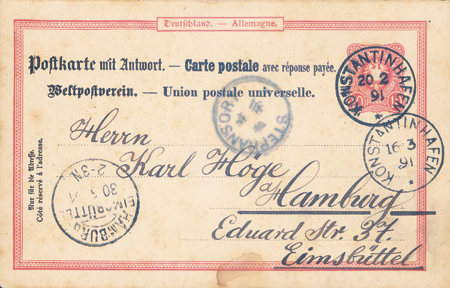 Deutschland. — Allemagne.
Postkarte mit Antwort. — Carte postale avec réponse payée.
Weltpostverein. — Union postale universelle.
KONSTANTINHAFEN
20 2
91
*
STEPHANSORT
KONSTANTINHAFEN
16 3
91
*
Nur für die Adresse.
Côté réservé à l'adresse.
HAMBURG
EIMSBÜTTEL
30.5.91
2-3N.
Herrn
Karl Höge
Hamburg
Eduard Str. 37.
Eimsbüttel